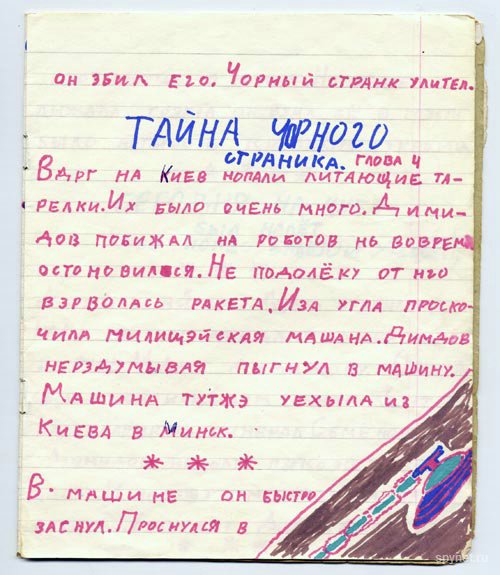 он збил его. Чорный странк улител.
ТАЙНА ЧОРНОГО
СТРАНИКА. глова 4
Вдрг на Киев нопали литающие та-
релки. Их было очень много. Дими-
дов побижал на роботов нь воврем
остоновился. Не подолёку от нго
взрволась ракета. Иза угла проско-
чила милищэйская машана. Димдов
нерздумывая пыгнул в машину.
Машина тутжэ уехыла из
Киева в Минск.
* * *
В. машине он быстро
заснул. Проснулся в
spynet.ru